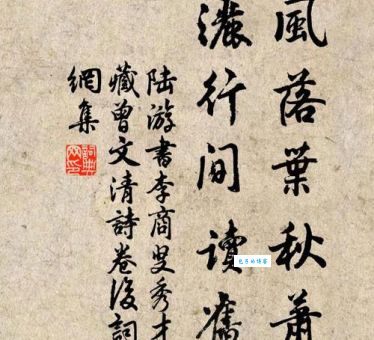 風落葉秋蕭
灑行间读舊
陸游書李商叟秀才
藏曾文清詩卷後詞
網集